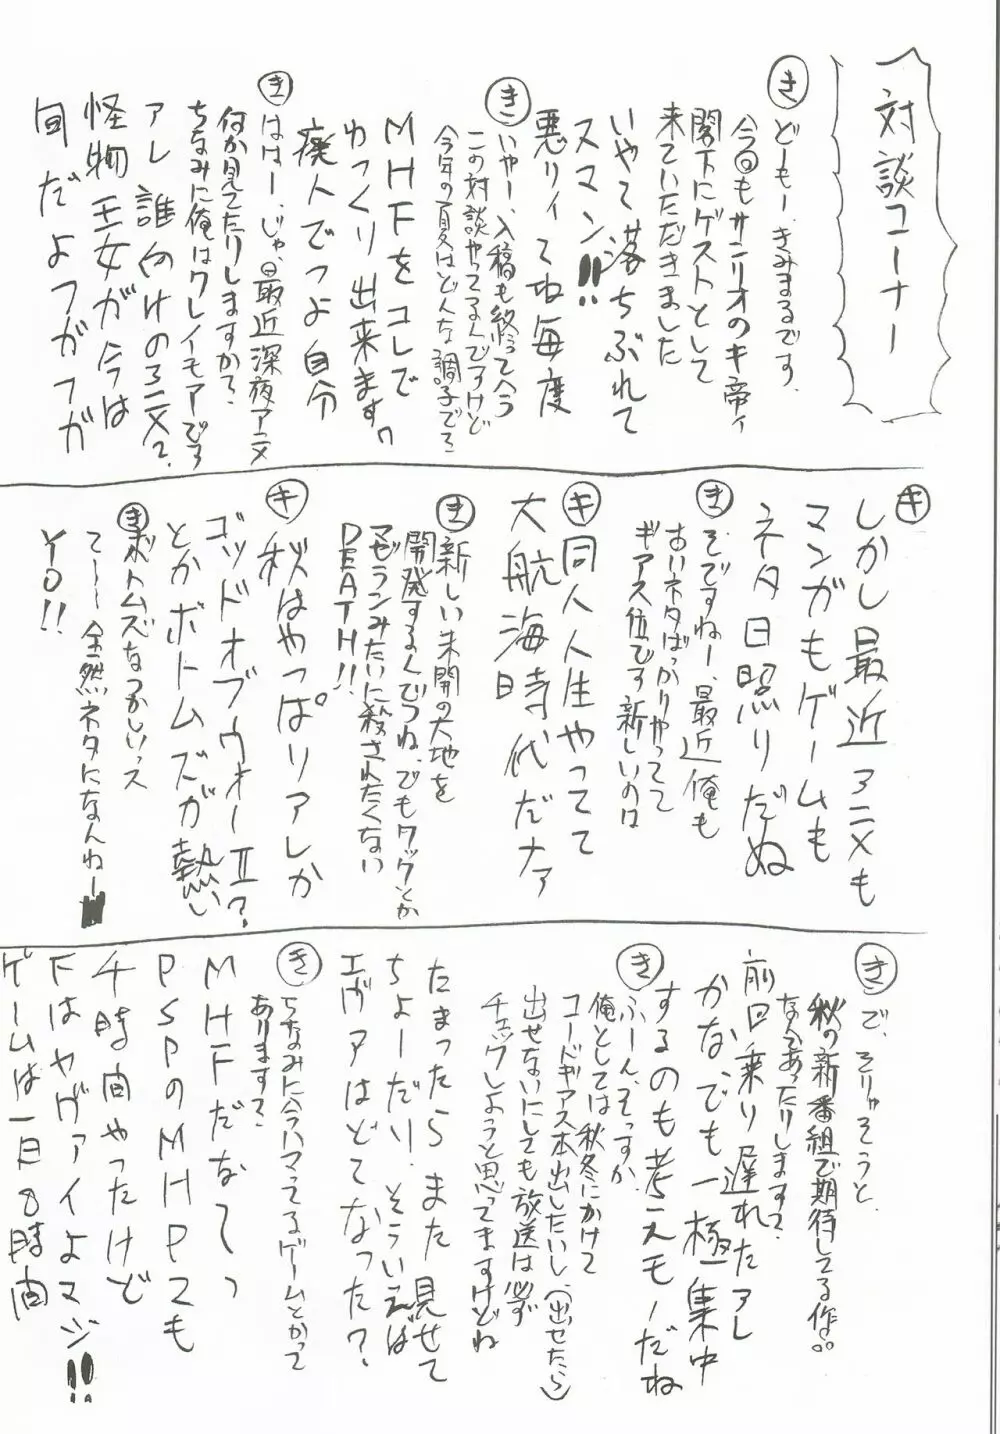 対談コーナー
き どーもー、きみまるです。
今回もサンリオのキ帝ィ
閣下にゲストとして
来ていただきました
いやて落ちぶれて
スマン!!
悪リィてね毎度
き いやー、入稿も終って
この対談やってるんですけど
今年の夏はどんな調子でろ
MHFをコレで
ゆっくり出来ます。
廃人でつよ自分
き はは―、じゃ、最近深夜アニメ
何か見てたりしますか?
ちなみに俺はクレイモアでろ
アレ誰向けのアニメ?
怪物王女が今は
旬だよフガフガ
キ しかし最近アニメも
マンガもゲームも
ネタ日照りだぬ
き そですねー、最近俺も
古いネタばっかりやってて
ギアス位です新しいのは
キ 同人人生やってて
大航海時代だナァ
き 新しい未開の大地を
開発するんでつね、でもクックとか
マゼランみたいに殺されたくない
DEATH!!
キ 秋はやっぱリアレか
ゴッドオブウォーⅡ?
とかボトムズが熱い
き ボトムズなつかしいっス
て〜〜全然ネタになんねー
YO!!
き で、そりゃそうと、
秋の新番組で期待してる作品
なんてあったりします?
前回乗り遅れたアレ
かな、でも一極集中
するのも考えモノだね
き ふーん、そっすか
俺としては秋冬にかけて
コードギアス本出したいし、(出せたら)
出せないにしても放送は必ず
チェックしようと思ってますけどね
たまったらまた見せて
ちょーだい、そういえば
エヴァはどてなった?
き ちなみに今ハマってるゲームとかって
あります?
MHFだなてっ
PSPのMHP2も
千時間やったけど
Fはヤヴァイよマジ!!
ゲームは一日8時間